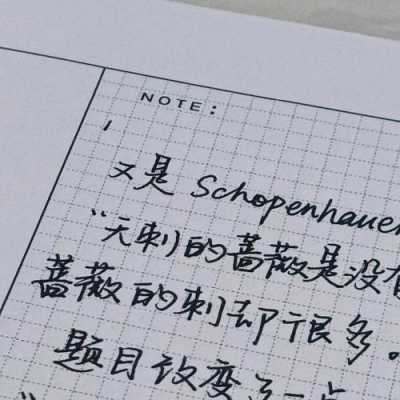 NOTE:
又是 Schopenhauer
"无刺的蔷薇是没有
蔷薇的刺却很多。
题目改变了一点